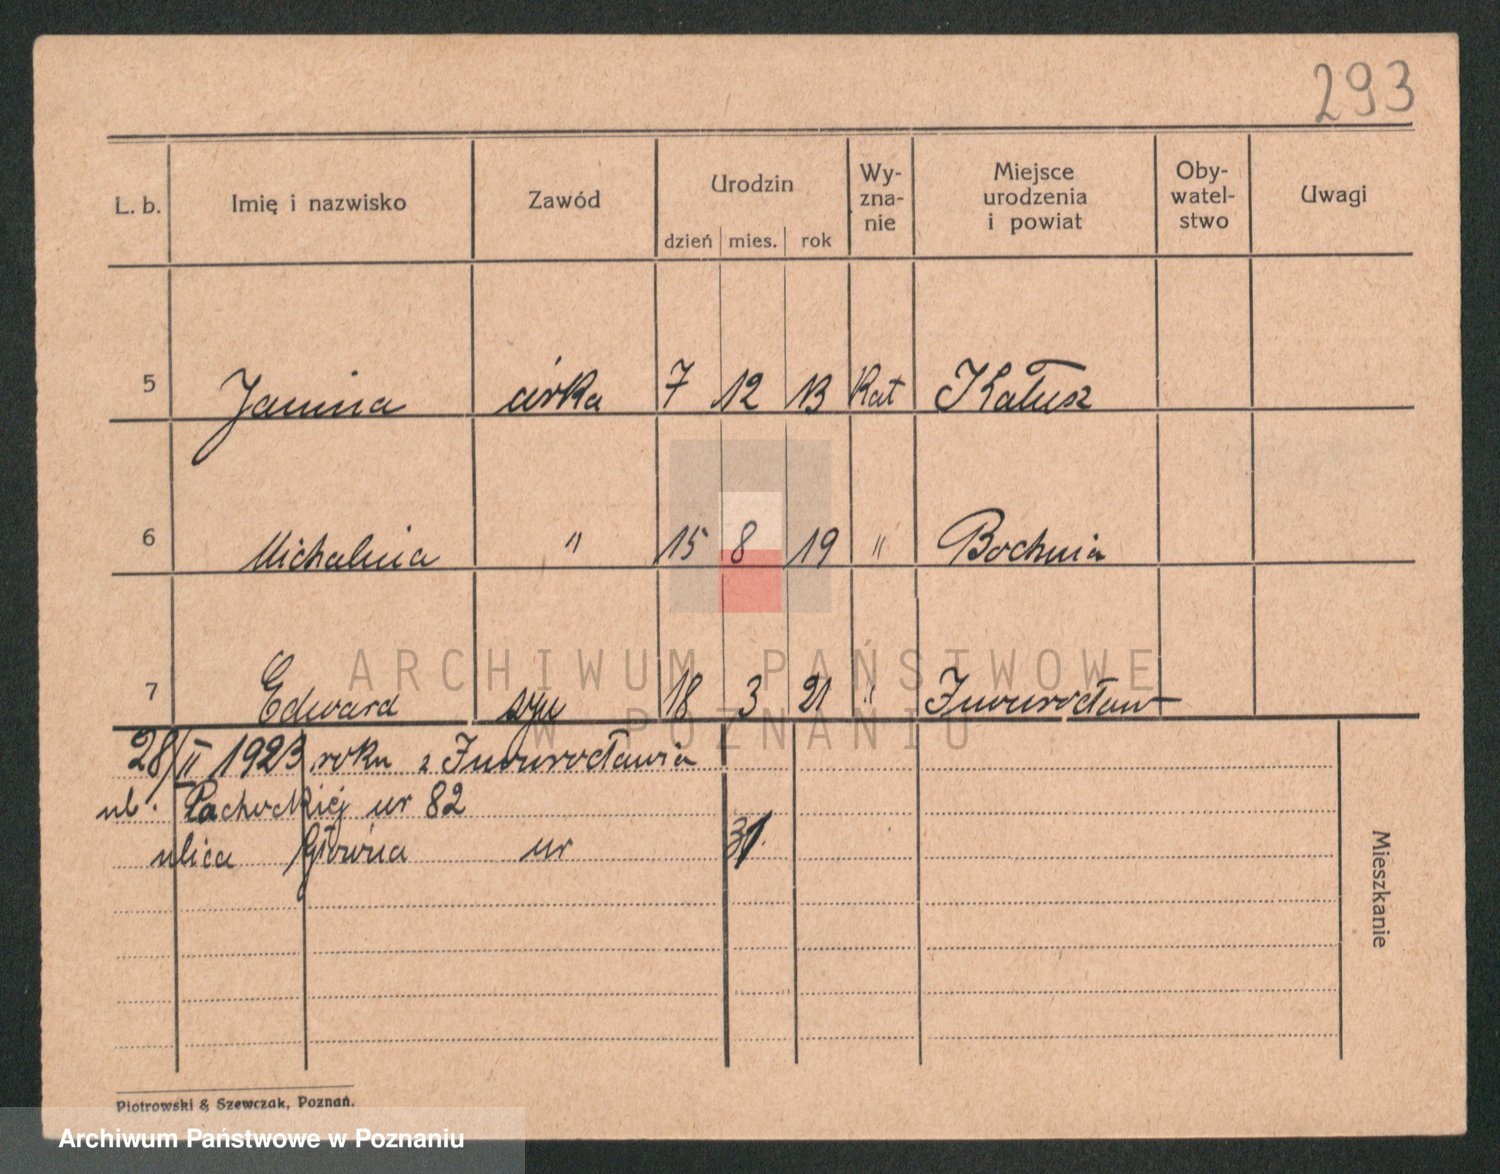 293
L. b. Imię i nazwisko Zawód Urodzin dzień mies. rok Wy-zna-nie Miejsce urodzenia i powiat Oby-watel-stwo Uwagi
5 Janina córka 7 12 13 Kat Kałusz
6 Michalina " 15 8 19 " Bochnia
7 Edward syn 18 3 21 " Inowrocław
28/II 1923 roku z Inowrocławia
ul. nr 82
ulica Główna nr 31.
Mieszkanie
Piotrowski & Szewczak, Poznań.
ARCHIWUM PAŃSTWOWE
W POZNANIU
Archiwum Państwowe w Poznaniu